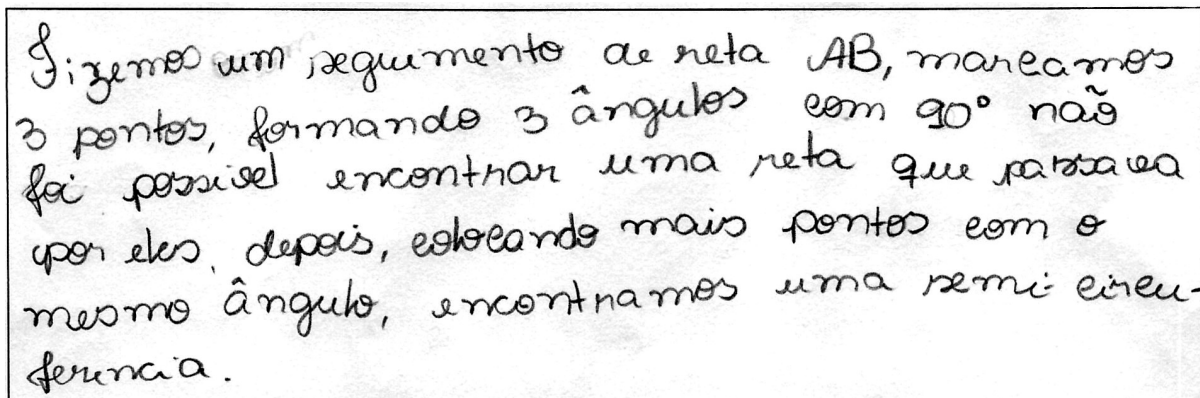 Fizemos um seguimento de reta AB, marcamos
3 pontos, formando 3 ângulos com 90° não
foi possivel encontrar uma reta que passava
por eles, depois, colocando mais pontos com o
mesmo ângulo, encontramos uma semi-circu-
ferencia.